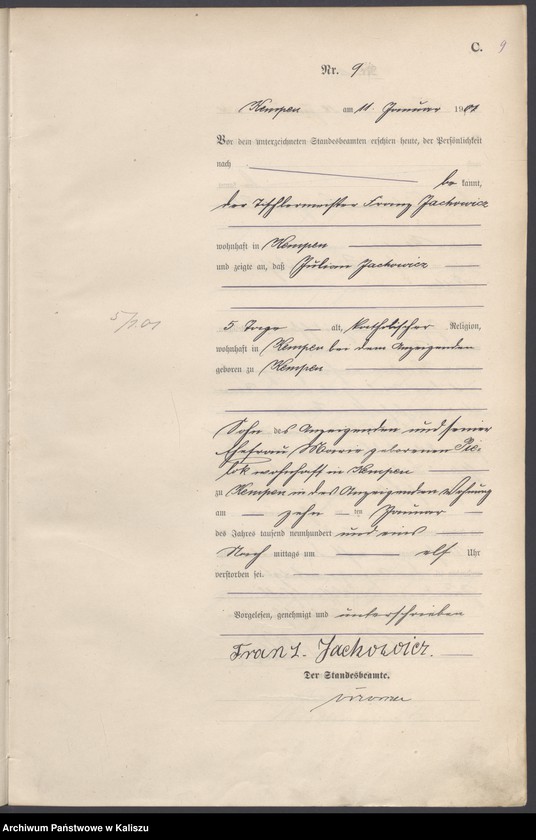 C. 9
Nr. 9
Kempen am 11. Januar 1901
Vor dem unterzeichneten Standesbeamten erschien heute, der Persönlichkeit
nach
be kannt,
der Tischlermeister Franz Jachowicz
wohnhaft in Kempen
und zeigte an, daß Julian Jachowicz
5 Tage alt, katholischer Religion,
5/1.01
wohnhaft in Kempen bei dem Anzeigenden
geboren zu Kempen
Sohn des Anzeigenden und seiner
Ehefrau Marie geborenen Pie-
lok wohnhaft in Kempen
zu Kempen in des Anzeigenden Wohnung
am zehn ten Januar
des Jahres tausend neunhundert und eins
Nach mittags um elf Uhr
verstorben sei.
Vorgelesen, genehmigt und unterschrieben
Franz Jachowicz.
Der Standesbeamte.
Archiwum Państwowe w Kaliszu